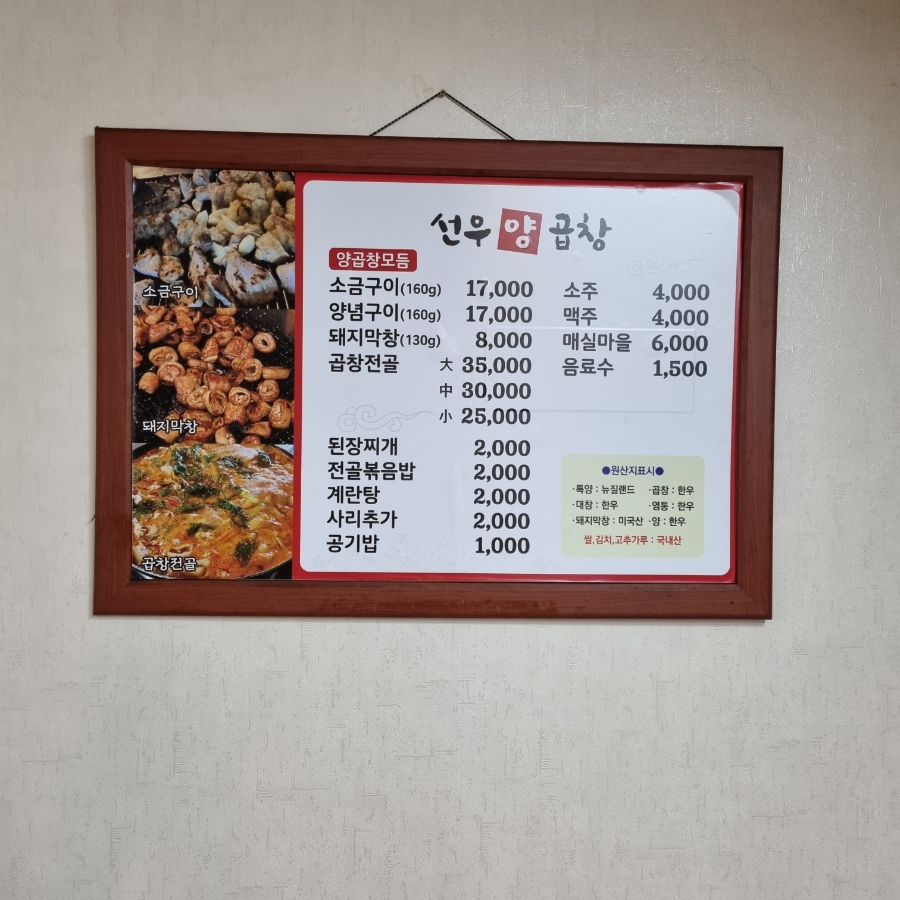 선우 양 곱창
양곱창모듬
소금구이(160g) 17,000
양념구이(160g) 17,000
돼지막창(130g) 8,000
곱창전골 大 35,000
中 30,000
小 25,000
된장찌개 2,000
전골볶음밥 2,000
계란탕 2,000
사리추가 2,000
공기밥 1,000
소주 4,000
맥주 4,000
매실마을 6,000
음료수 1,500
●원산지표시●
·특양 : 뉴질랜드 ·곱창 : 한우
·대창 : 한우 ·염통 : 한우
·돼지막창 : 미국산 ·양 : 한우
쌀,김치,고추가루 : 국내산
소금구이
돼지막창
곱창전골